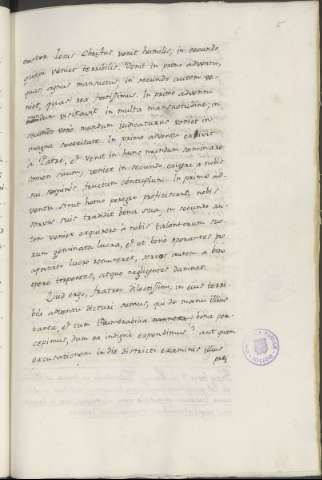 5
noster Jesus Christus venit humilis, in secundo
quippe veniet terribilis. Venit in primo adventu,
quasi agnus mansuetus in secundo autem ve-
niet, quasi leo fortissimus. In primo adventu
mundum visitavit in multa mansuetudine, in
secundo vero mundum judicaturus veniet in
magna severitate. In primo adventu exivit
a Patre, et venit in hunc mundum seminare
semen suum, veniet in secundo exigere a nobis
sui seminis fructum centuplum. In primo ad-
ventu sicut homo peregre proficiscens, nobis
servis suis tradidit bona sua, in secundo au-
tem veniet a nobis talentorum suo-
rum geminata lucra, et ut bono operantes pro
lucro remuneret, servos autem a bono
opere torpentes, atque negligentes damnet.
Quid ergo, fratres dilectissimi, in ejus terri-
bili adventu dicturi sumus, qui de manu illius
tanta, et tam bona per-
cepimus, dum ea indigne expendimus? aut quam
excusationem in die districti examinis illius